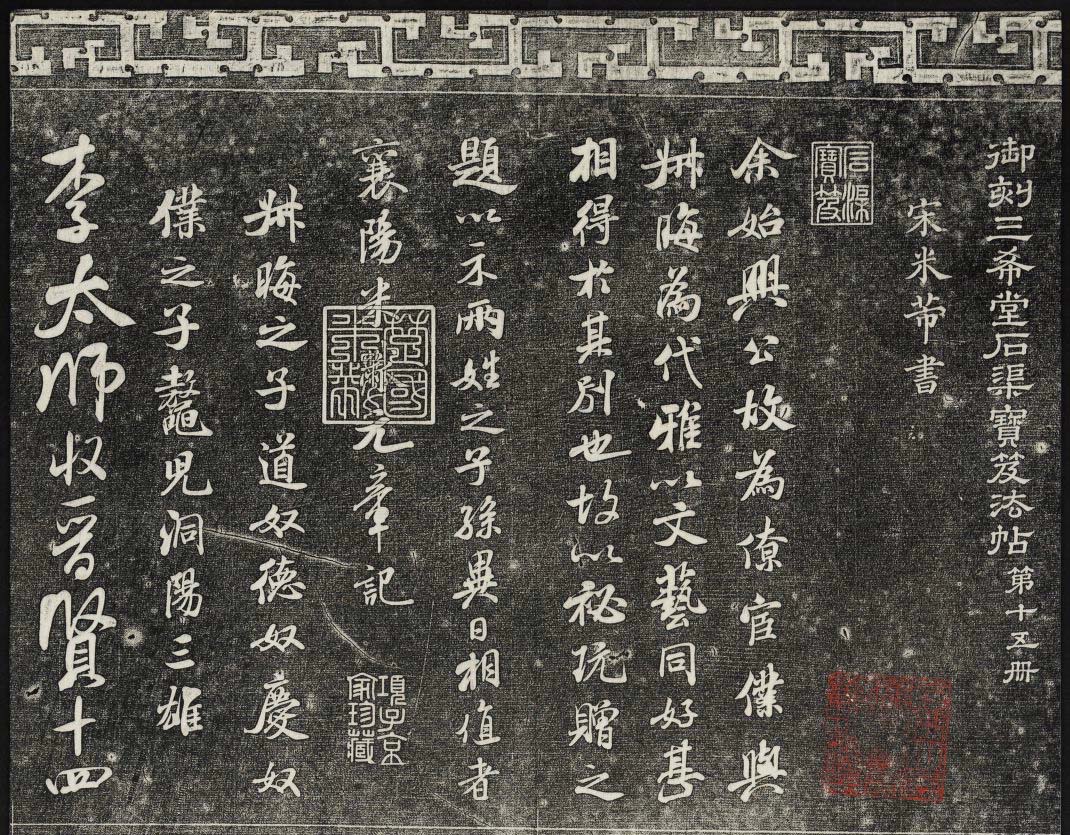 御刻三希堂石渠寶笈法帖第十五冊
宋米芾書
石渠寶笈
余始興公故為僚宦僕與
叔晦為代雅以文藝同好甚
相得於其別也故以秘玩贈之
題以示兩姓之子孫異日相值者
襄陽米黻元章記
項子京家珍藏
叔晦之子道奴德奴慶奴
僕之子鼇兒洞陽三雄
李太師收晉賢十四